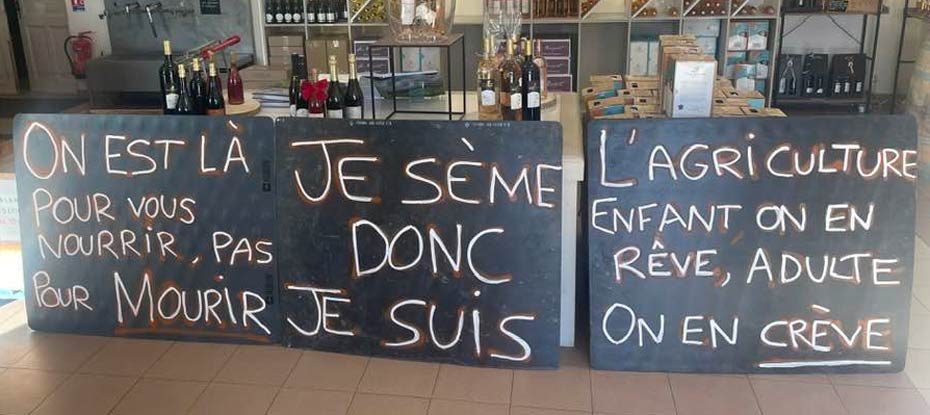 ON EST LÀ
POUR VOUS
NOURRIR, PAS
POUR MOURIR
JE SÈME
DONC
JE SUIS
L'AGRICULTURE
ENFANT ON EN
RÊVE, ADULTE
ON EN CRÈVE